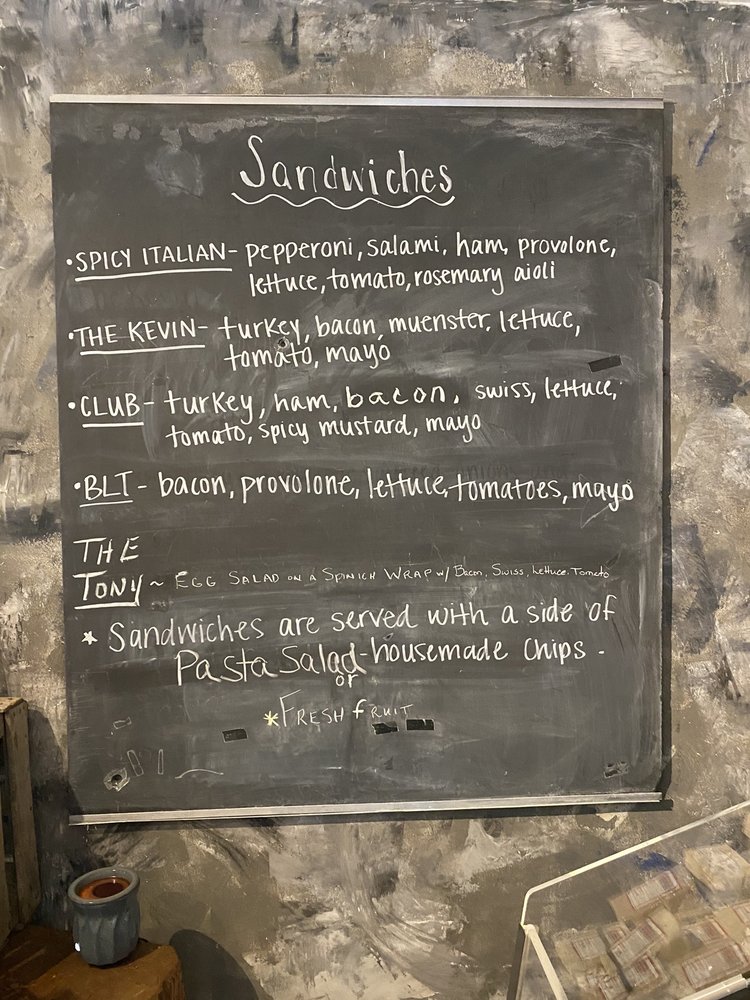 Sandwiches
•SPICY ITALIAN- pepperoni, salami, ham, provolone,
lettuce, tomato, rosemary aioli
•THE KEVIN- turkey, bacon, muenster, lettuce,
tomato, mayo
•CLUB- turkey, ham, bacon, swiss, lettuce,
tomato, spicy mustard, mayo
•BLT- bacon, provolone, lettuce, tomatoes, mayo
THE
TONY ~ EGG SALAD ON A SPINICH WRAP w/ Bacon, Swiss, Lettuce, Tomato
* Sandwiches are served with a side of
Pasta Salad-housemade chips -
or
*FRESH fRUIT